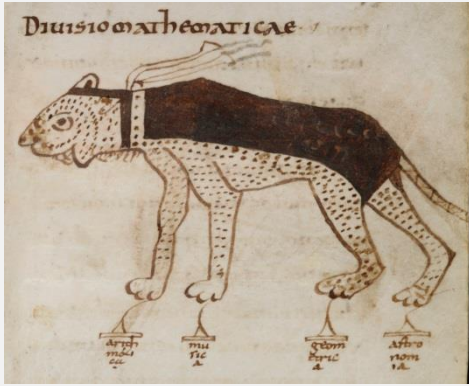 Diuisiomathematicae
arith
meti
ca
mu
sic
a
geom
etric
a
astro
nom
ia